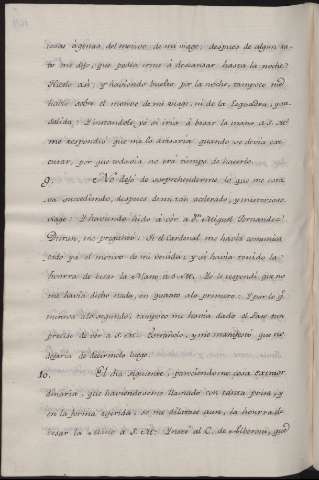 cosas agenas del motivo de mi viage; despues de algun ra-
to me dijo, que podia irme à descansar hasta la noche.
Hicelo asi; y haviendo buelto por la noche, tampoco me
hablò sobre el motivo de mi viage, ni de la Legadura, y a su
salida; Preguntandole, si iria à besar la mano a S. M.
me respondiò que me lo avisaria quando se devia exe-
cutar, por que todavia no era tiempo de hacerlo.
9. No dejò de sorprehenderme lo que me esta-
va sucediendo, despues de un tan acelerado, y misterioso
viage. Y haviendo hido à vèr à Dn. Miguel Fernandez
Duran, me preguntò: Si el Cardenal me havia comunica-
do yà el motivo de mi venida, y si havia tenido la
honrra de besar la Mano à S. M. Yo le respondì que no
me havia dicho nada, en quanto a lo primero. I por lo q.
mira a lo segundo, tampoco me havia dado el Pase tan
preciso de vèr à S. M. Estrañolo, y me manifestò que no
dejaria de decirmelo luego.
10. El dia siguiente, pareciendome cosa extraor-
dinaria, que haviendoseme llamado con tanta prisa, y
en la forma referida, se me dilatase aun, la honrra de
besar la Mano à S. M. Instè al C. de Alberoni, que